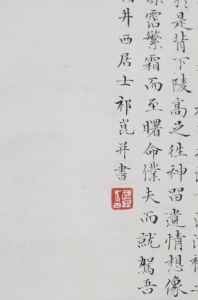 於是背下陵高足往神留遺情想像
霑繁霜而至曙命僕夫而就駕吾
井西居士祁崑并書